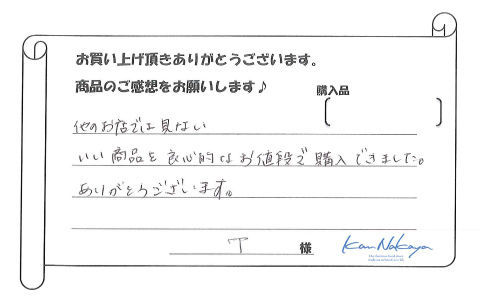 お買い上げ頂きありがとうございます。
商品のご感想をお願いします♪
購入品
他のお店では見ない
いい商品を良心的なお値段で購入できました。
ありがとうございます。
T 様
Kan Nakaya